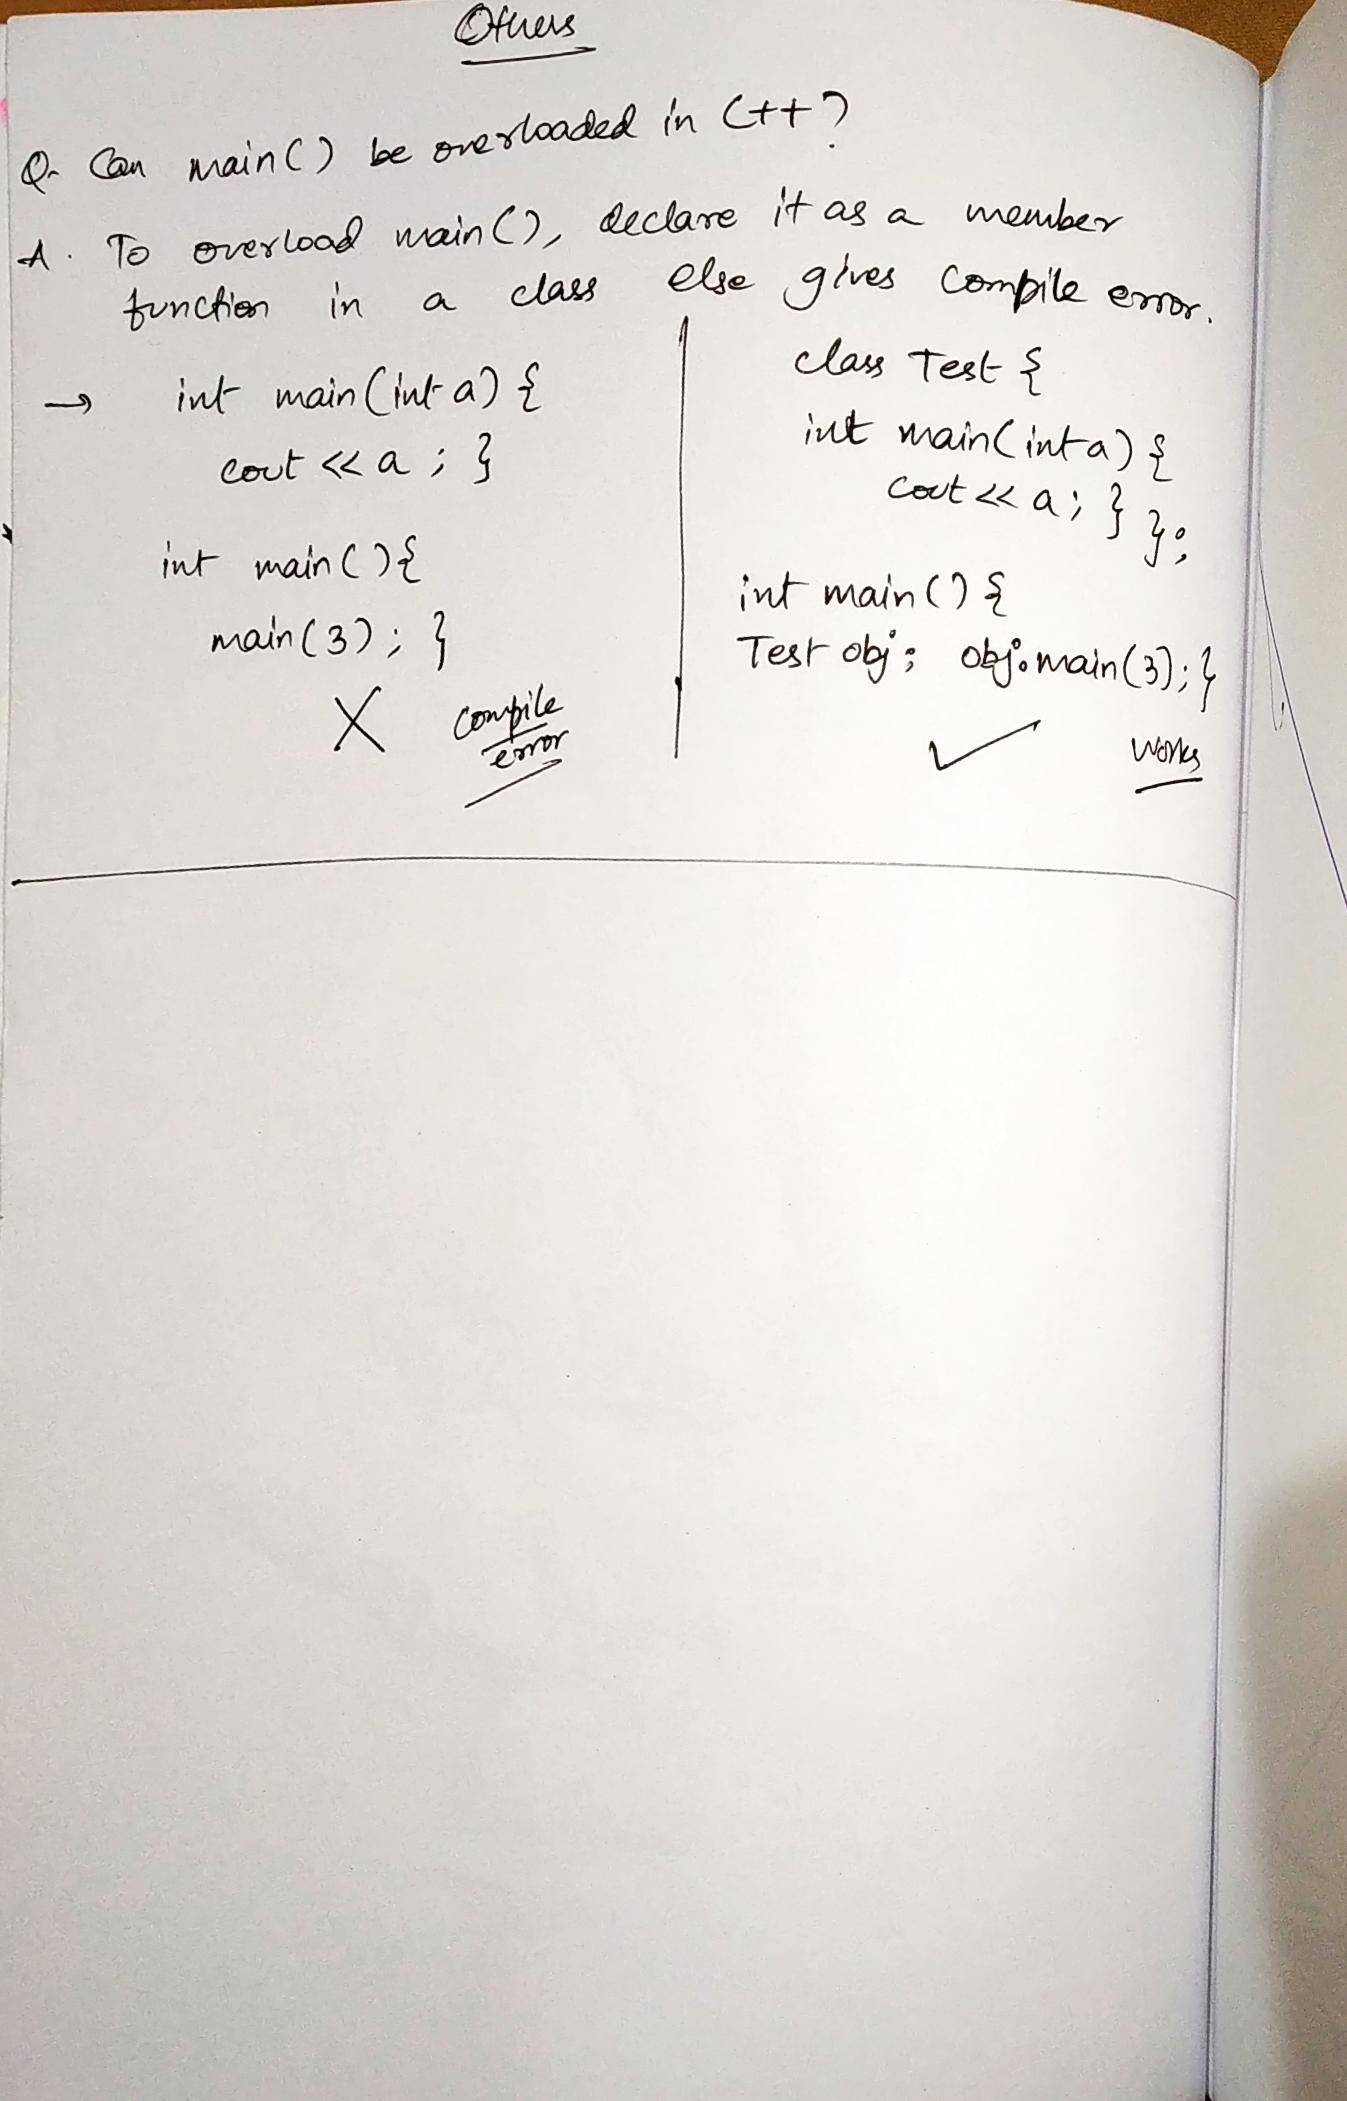 Others
Q. Can main() be overloaded in C++?
A. To overload main(), declare it as a member
function in a class else gives compile error.
→ int main(int a) {
cout << a ; }
int main(){
main(3) ; }
X compile
error
class Test {
int main(int a) {
cout << a; } };
int main() {
Test obj; obj.main(3); }
✓ works